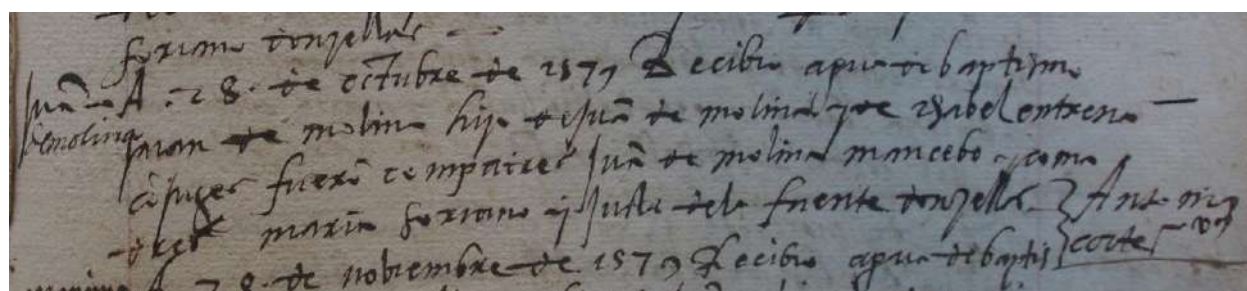 soriano donzellas
Juā de molina
A .28. de octubre de 1579 Recibio agua de baptismo
Juan de molina hijo de Juā de molina y de ysabel entrena
cōjuges fuerō compatres Juā de molina mancebo y coma
dres maria soriano y Justa dela fuente donzellas
Antonio cortes
A 28. de nobiembre de 1579 Recibio agua de baptis